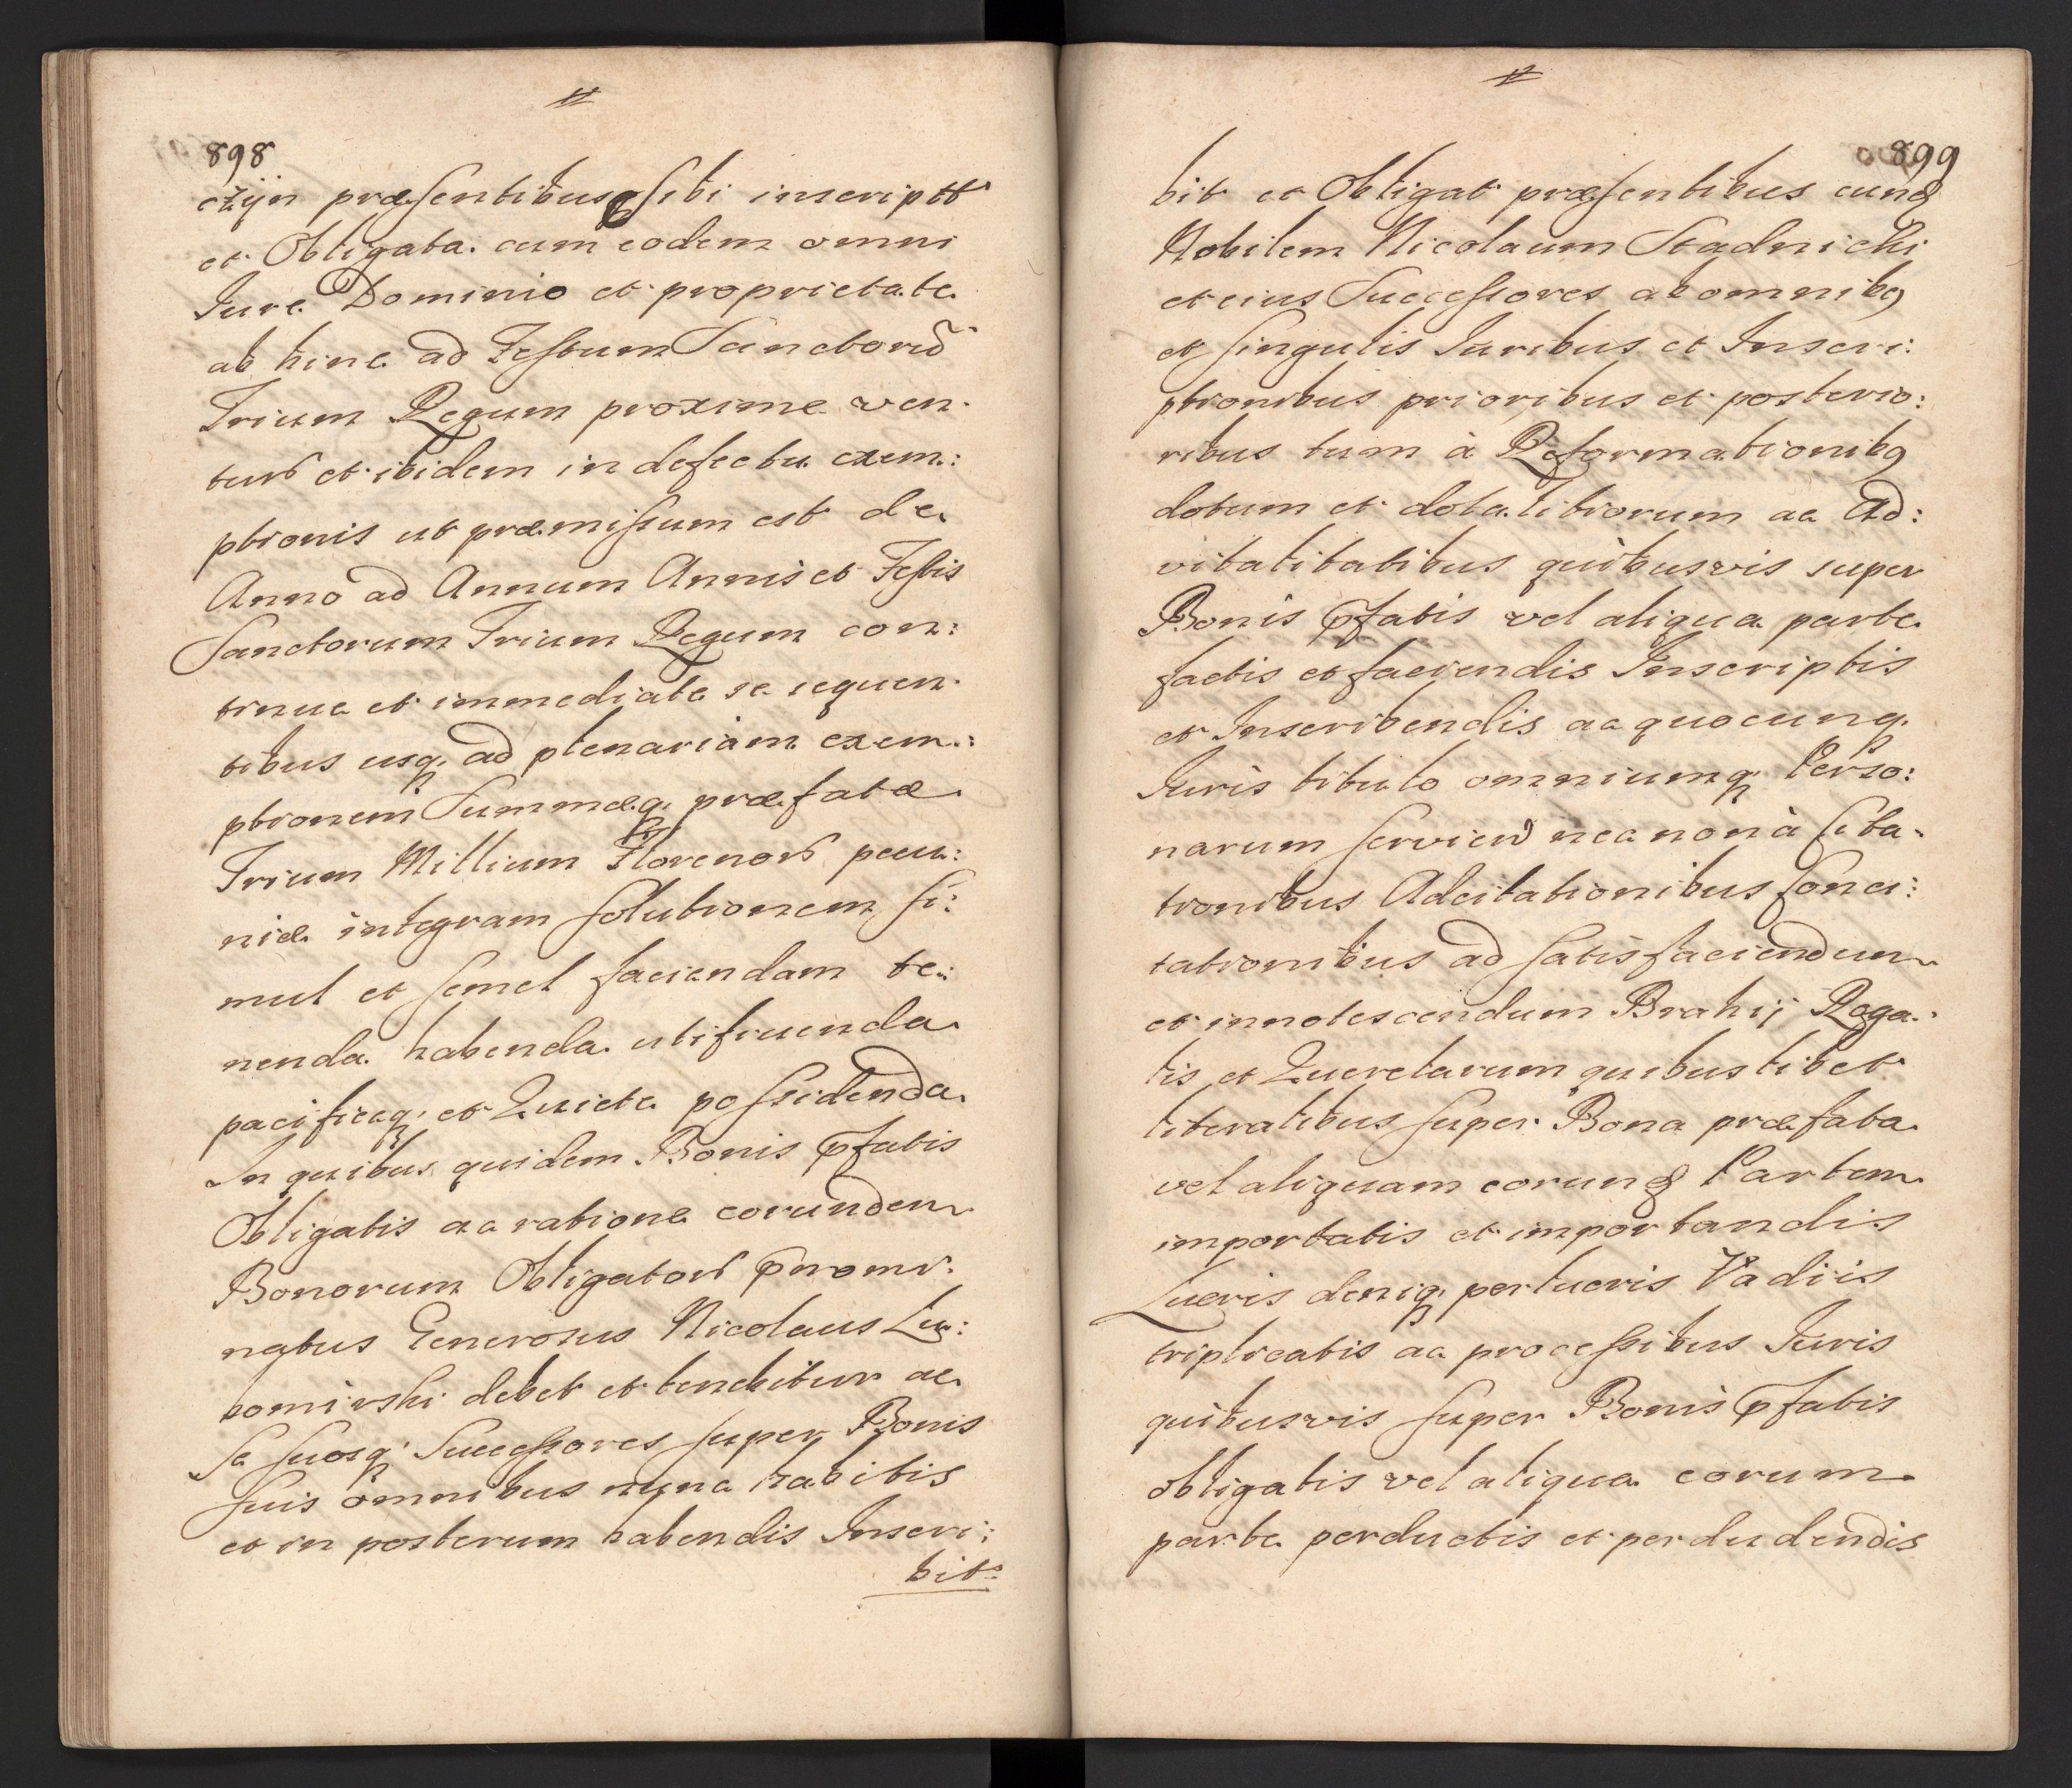 898
czÿn præsentibus sibi inscriptt
et Obligata cum eodem omni
Jure Dominio et proprietate
ab hinc ad Festum Sanctorū
Trium Regum proxime ven:
turū et ibidem in defectu exem:
ptionis ut præmissum est de
Anno ad Annum Annis et Festis
Sanctorum Trium Regum con:
tinue et immediate se sequen:
tibus usq. ad plenariam exem:
ptionem Summæq. præfatæ
Trium Millium Florenorū pecu:
niæ integram solutionem si:
mul et semel faciendam te:
nenda habenda utifruenda
pacificeq. et Quiete possidenda
In quibus quidem Bonis pfatis
Obligatis ac ratione eorundem
Bonorum Obligatorū pnomi:
natus Generosus Nicolaus Lu:
bomirski debet et tenebitur ac
se suosq. Successores super Bonis
suis omnibus nunc habitis
et in posterum habendis Inscri:
bit:
899
bit et Obligat præsentibus eund
Nobilem Nicolaum Stadnicki
et eius Successores ab omnibq
et singulis Juribus et Inscri:
ptionibus prioribus et posterio:
ribus tum à Reformationibq
dotum et dotalitiorum ac Ad:
vitalitatibus quibusvis super
Bonis pfatis vel aliqua parte
factis et faciendis Inscriptis
et Inscribendis ac quocunq.
Juris titulo omniumq. Perso:
narum serviend nec non à Cita:
tionibus Adcitationibus Conci:
tationibus ad satisfaciendum
et innotescendum Brahij Rega:
lis et Querelarum quibuslibet
literalibus super Bona præfata
vel aliquam eorund Partem
importatis et importandis
Lucris deniq. perlucris Vadiis
triplicatis ac processibus Juris
quibusvis super Bonis pfatis
obligatis vel aliqua eorum
parte perductis et perdudendis